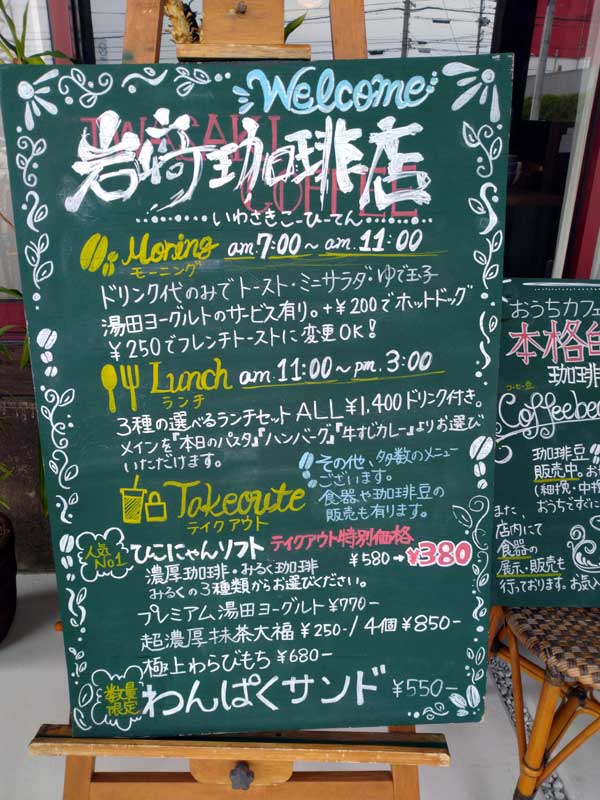 Welcome
IWASAKI
COFFEE
岩﨑珈琲店
いわさきこーひーてん
Moring am.7:00~am.11:00
モーニング
ドリンク代のみでトースト・ミニサラダ・ゆで玉子
湯田ヨーグルトのサービス有り。+¥200でホットドッグ
¥250でフレンチトーストに変更OK!
Lunch am.11:00~pm.3:00
ランチ
3種の選べるランチセットALL¥1,400ドリンク付き。
メインを『本日のパスタ』『ハンバーグ』『牛すじカレー』よりお選び
いただけます。
その他、多数のメニュー
ございます。
食器や珈琲豆の
販売も有ります。
Takeoute
テイクアウト
人気No1
ひこにゃんソフト テイクアウト特別価格
¥580→¥380
濃厚珈琲・みるく珈琲
みるくの3種類からお選びください。
プレミアム湯田ヨーグルト¥770-
超濃厚抹茶大福¥250-/4個¥850-
極上わらびもち¥680-
数量限定
わんぱくサンド ¥550-
おうちカフェ
本格
珈琲
コーヒー豆
Coffeebe
珈琲豆
販売中。お
(細挽・中挽
おうちで
また、
店内にて
食器の
展示・販売も
行っております。お気